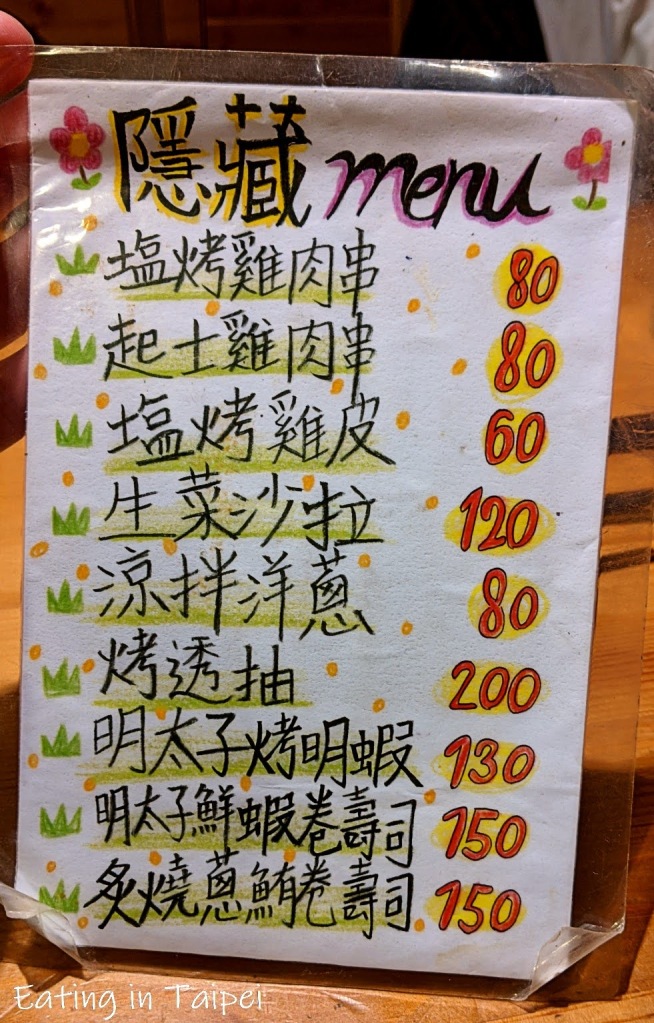 隱藏 menu
塩烤雞肉串 80
起士雞肉串 80
塩烤雞皮 60
生菜沙拉 120
涼拌洋蔥 80
烤透抽 200
明太子烤明蝦 130
明太子鮮蝦卷壽司 150
炙燒蔥鮪卷壽司 150
Eating in Taipei